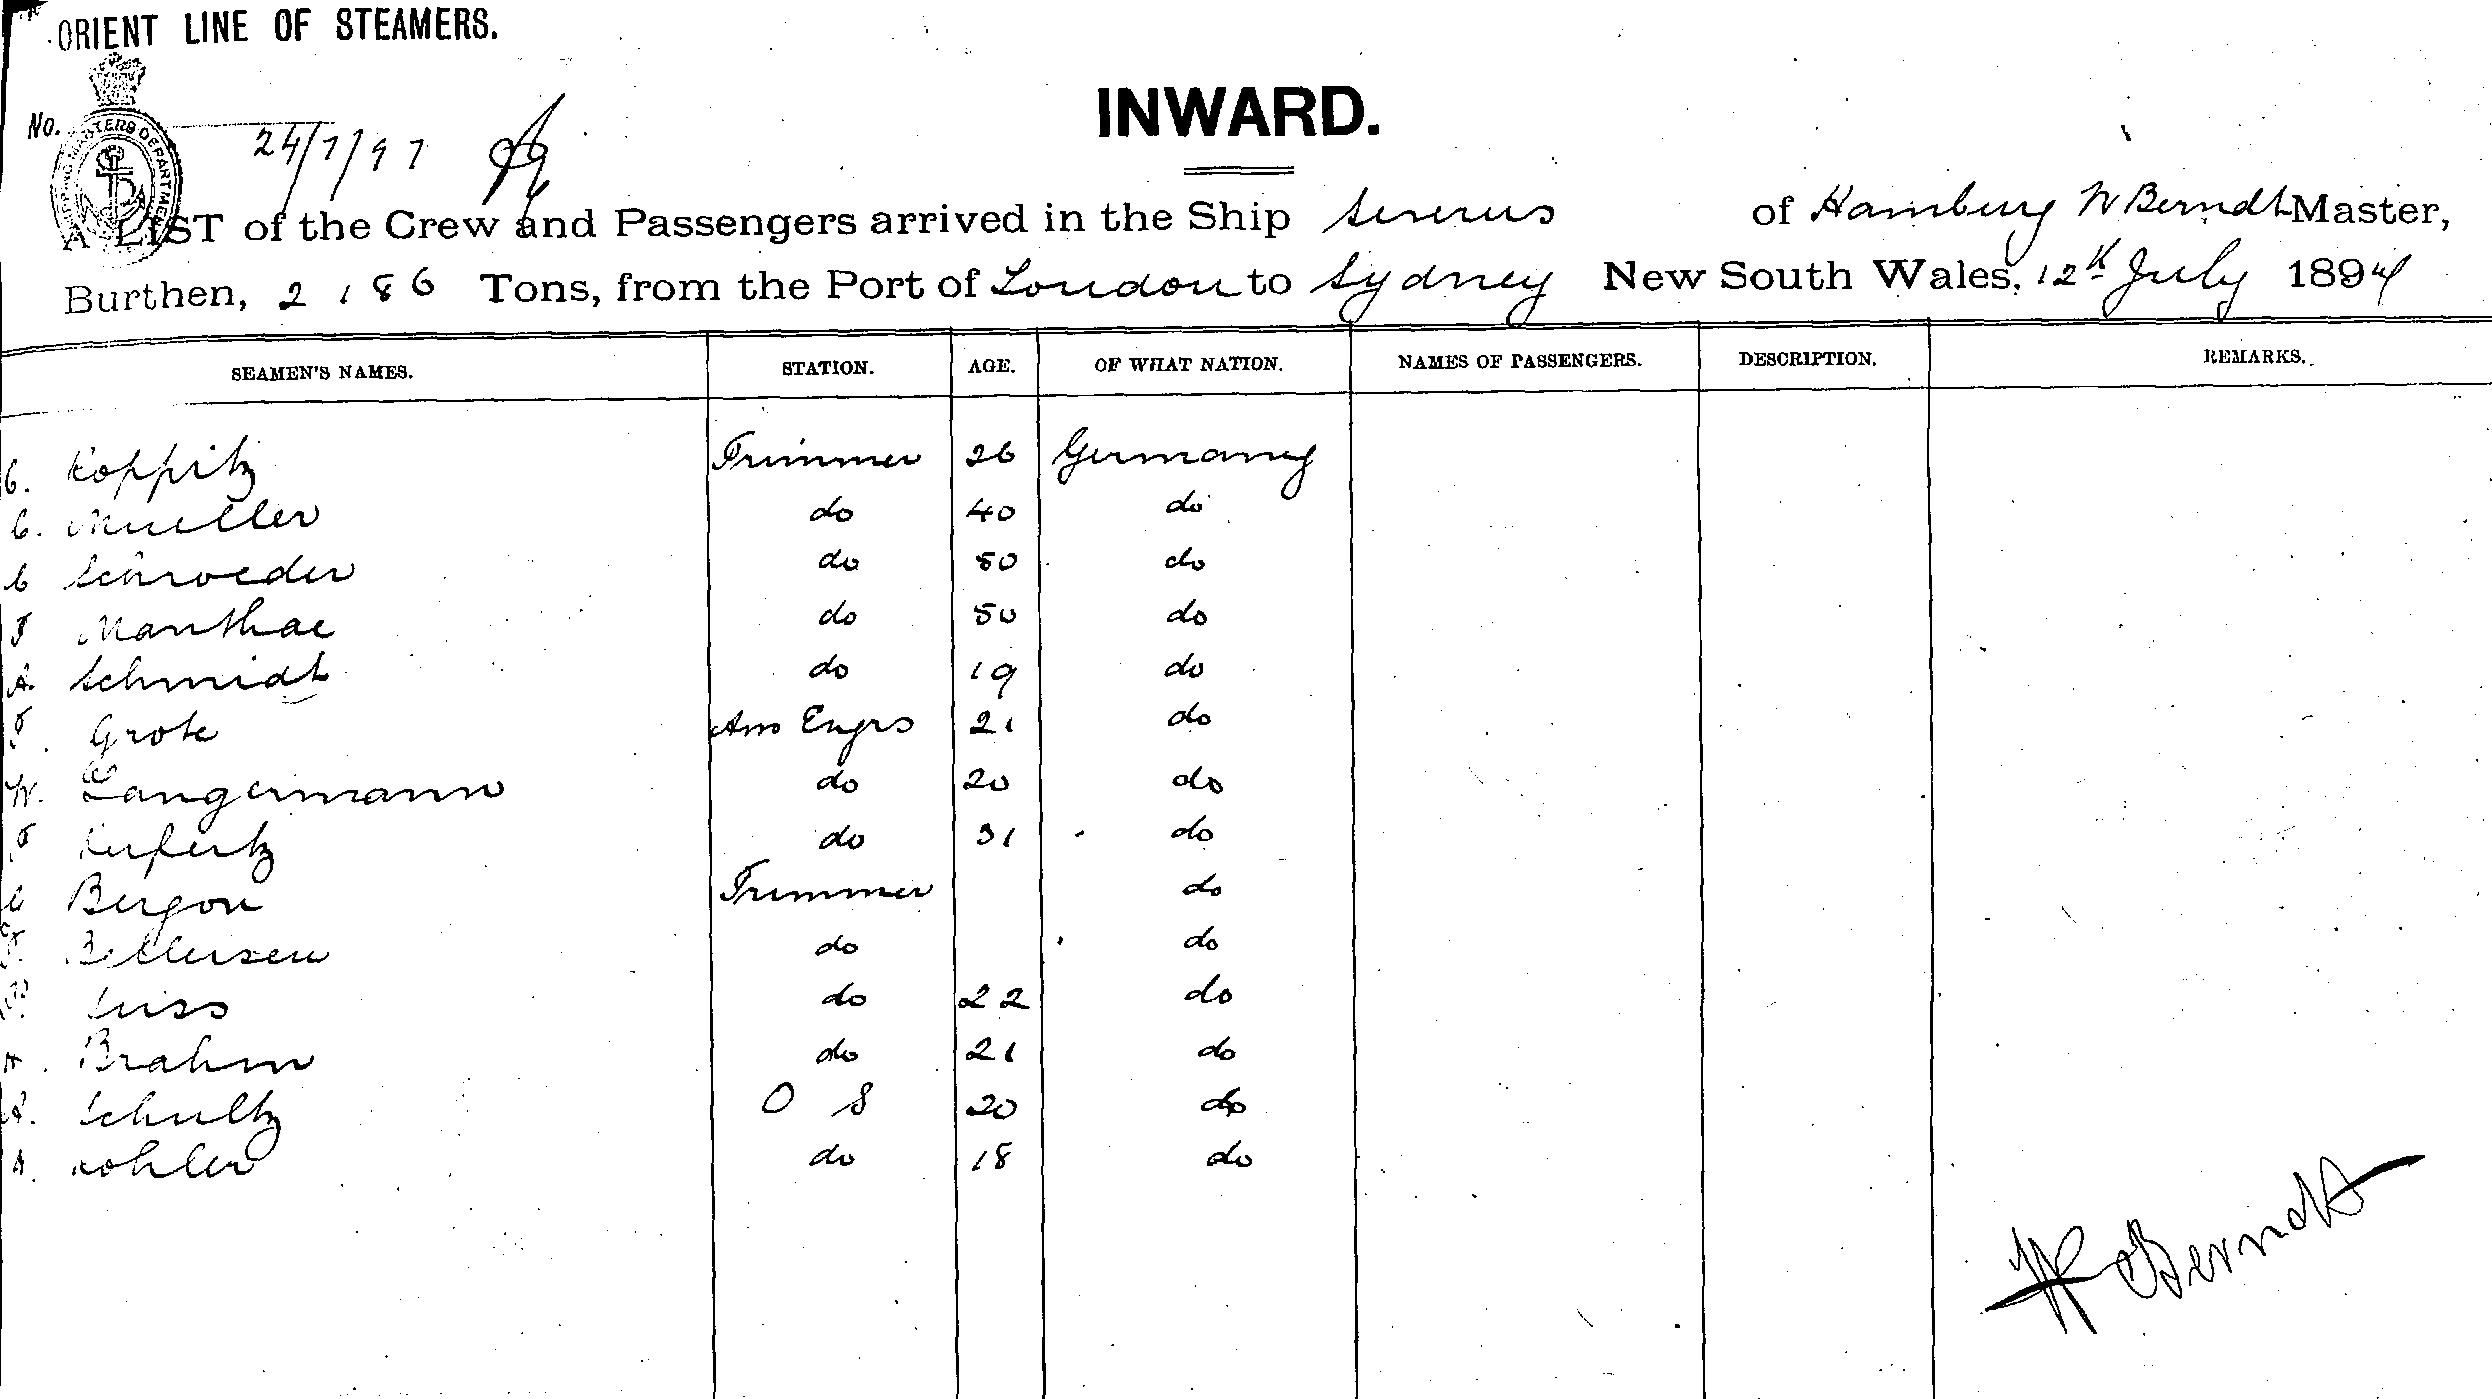 ORIENT LINE OF STEAMERS.
INWARD.
No.
SHIPPING MASTERS DEPARTMENT
24/7/97
A LIST of the Crew and Passengers arrived in the Ship Severus of Hamburg W Berndt Master,
Burthen, 2186 Tons, from the Port of London to Sydney New South Wales, 12th July 1897
SEAMEN'S NAMES. STATION. AGE. OF WHAT NATION. NAMES OF PASSENGERS. DESCRIPTION. REMARKS.
C. Koppitz Trimmer 26 Germany
C. Mueller do 40 do
C Schroeder do 50 do
F Manthae do 50 do
A. Schmidt do 19 do
F. Grote Ass Engrs 21 do
W. Langermann do 20 do
do 31 do
C Bergon Trimmer do
do do
do 22 do
H. Brahm do 21 do
A. Schultz O S 20 do
A. Kohler do 18 do
W Berndt